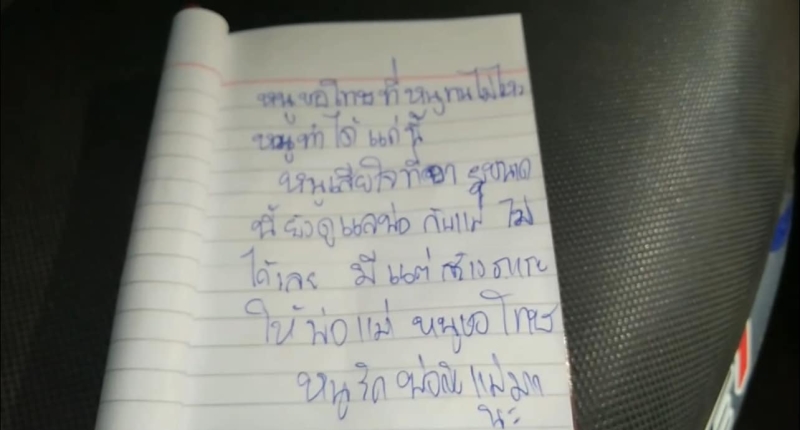 หนูขอโทษที่หนูทนไม่ไหว
หนูทำได้แค่นี้
หนูเสียใจที่อายุขนาด
นี้ยังดูแลพ่อกับแม่ไม่
ได้เลย มีแต่สร้างภาระ
ให้พ่อแม่ หนูขอโทษ
หนูรักพ่อกับแม่มา
นะ